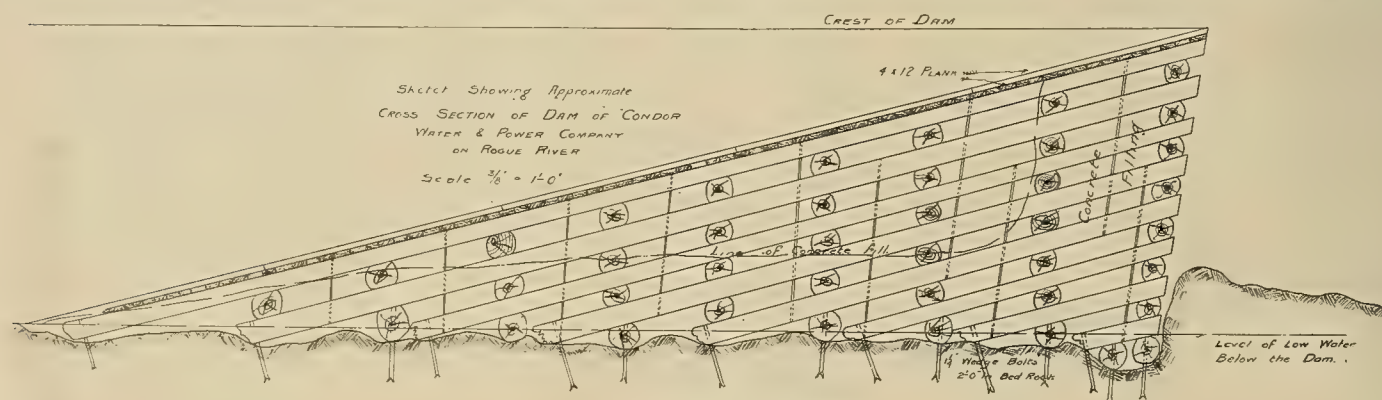 CREST OF DAM
4 x 12 PLANK
Sketch Showing Approximate
CROSS SECTION OF DAM OF CONDOR
WATER & POWER COMPANY
ON ROGUE RIVER
Scale 3/8" = 1'-0"
Concrete
Filling
Line of Concrete Fill
1¼" Wedge Bolts
2'-0" in Bed Rock
Level of Low Water
Below the Dam.